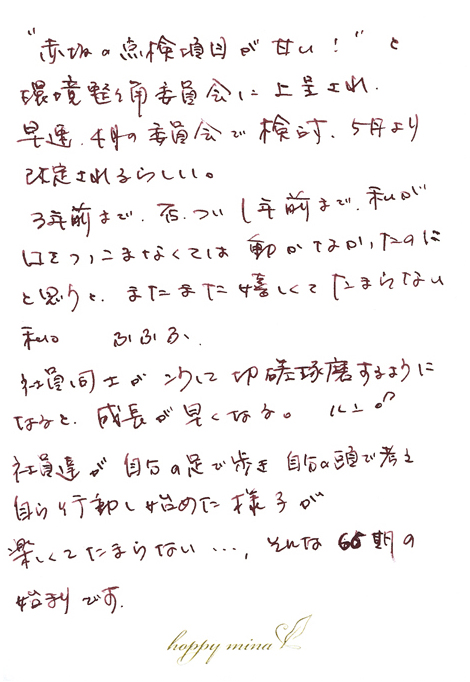 "赤坂の点検項目が甘い！"と
環境整備委員会に上呈され、
早速、4月の委員会で検討、5月より
改定されるらしい。
3年前まで、否、つい1年前まで、私が
口をつっこまなくては動かなかったのに
と思うと、またまた嬉しくてたまらない
私。 ふふふ、
社員同士が 少しで 切磋琢磨するように
なると、成長が早くなる。
社員達が 自分の足で歩き 自分の頭で考え
自ら行動し始めた 様子が
楽しくてたまらない…、そんな 66期の
始まりです。
happy mina